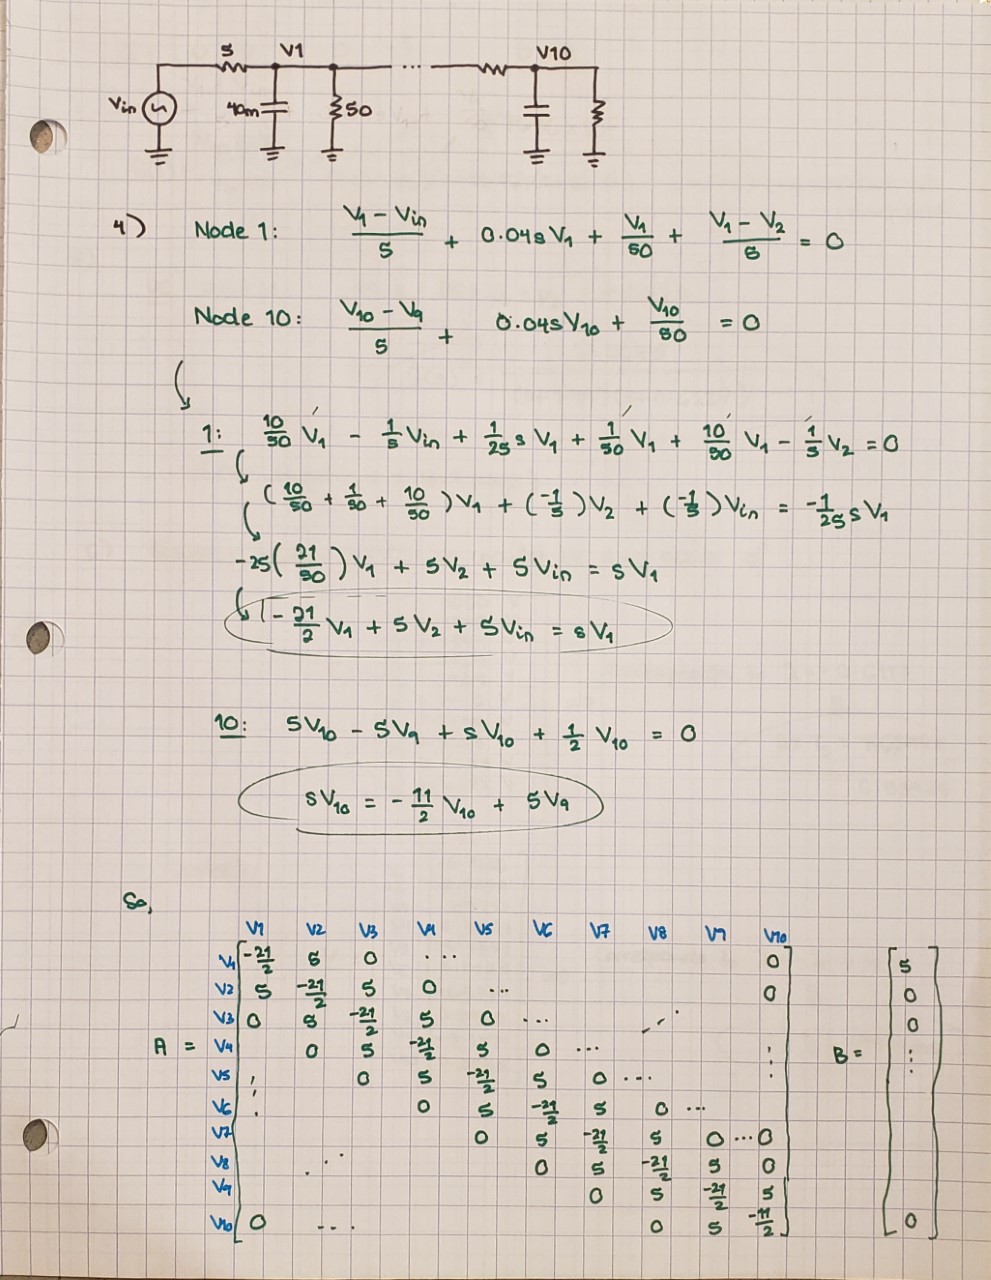 5 V1 ... V10
Vin 40m 50
4) Node 1: (V1 - Vin)/5 + 0.04sV1 + V1/50 + (V1 - V2)/5 = 0
Node 10: (V10 - V9)/5 + 0.04sV10 + V10/50 = 0
1: 10/50 V1 - 1/5 Vin + 1/25 s V1 + 1/50 V1 + 10/50 V1 - 1/5 V2 = 0
(10/50 + 1/50 + 10/50)V1 + (-1/5)V2 + (-1/5)Vin = -1/25 sV1
-25(21/50)V1 + 5V2 + 5Vin = sV1
-21/2 V1 + 5V2 + 5Vin = sV1
10: 5V10 - 5V9 + sV10 + 1/2 V10 = 0
sV10 = -11/2 V10 + 5V9
So,
V1 V2 V3 V4 V5 V6 V7 V8 V9 V10
V1 -21/2 5 0 ... 0 5
V2 5 -21/2 5 0 ... 0 0
V3 0 5 -21/2 5 0 ... 0
A = V4 0 5 -21/2 5 0 ... B = ⋮
V5 0 5 -21/2 5 0 ...
V6 0 5 -21/2 5 0 ...
V7 0 5 -21/2 5 0 ... 0
V8 0 5 -21/2 5 0
V9 0 5 -21/2 5
V10 0 ... 0 5 -11/2 0